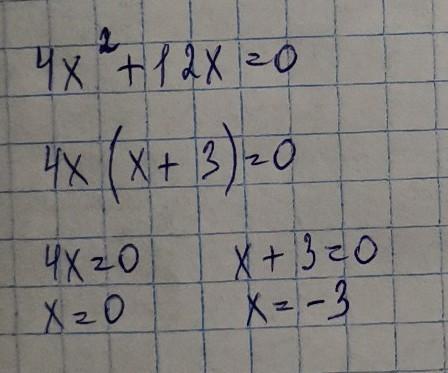 4x² + 12x = 0
4x (x + 3) = 0
4x = 0 x + 3 = 0
x = 0 x = -3